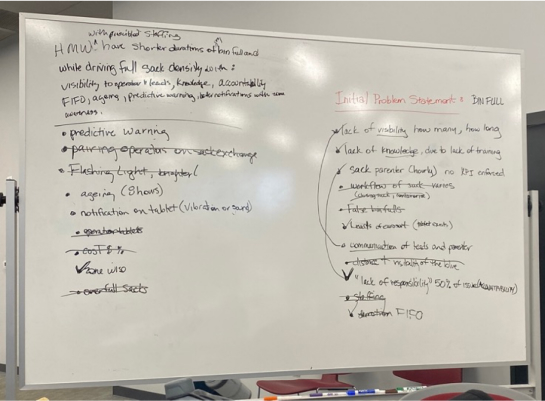 with permitted staffing
HMW ^ have shorter durations of bin full and
while driving full sack density down:
visibility to operator & leads, knowledge, accountability
FIFO, ageing, predictive warning, notifications with zone
awareness.
• predictive warning
• pairing operator on sack exchange
• Flashing light, brighter
• ageing (Shows)
• notification on tablet (vibration or sound)
• operator tablets
• cost
✓ zone wise
• overfull sacks
Initial Problem Statement: BIN FULL
lack of visibility how many, how long
lack of knowledge, due to lack of training
sack parenter (hourly) no KPI enforced
• workflow of sack varies
• False binfulls
• communication of leads and parenter
✓ "lack of responsibility" 50% of issue (ACCOUNTABILITY)
• staffing
downstream FIFO